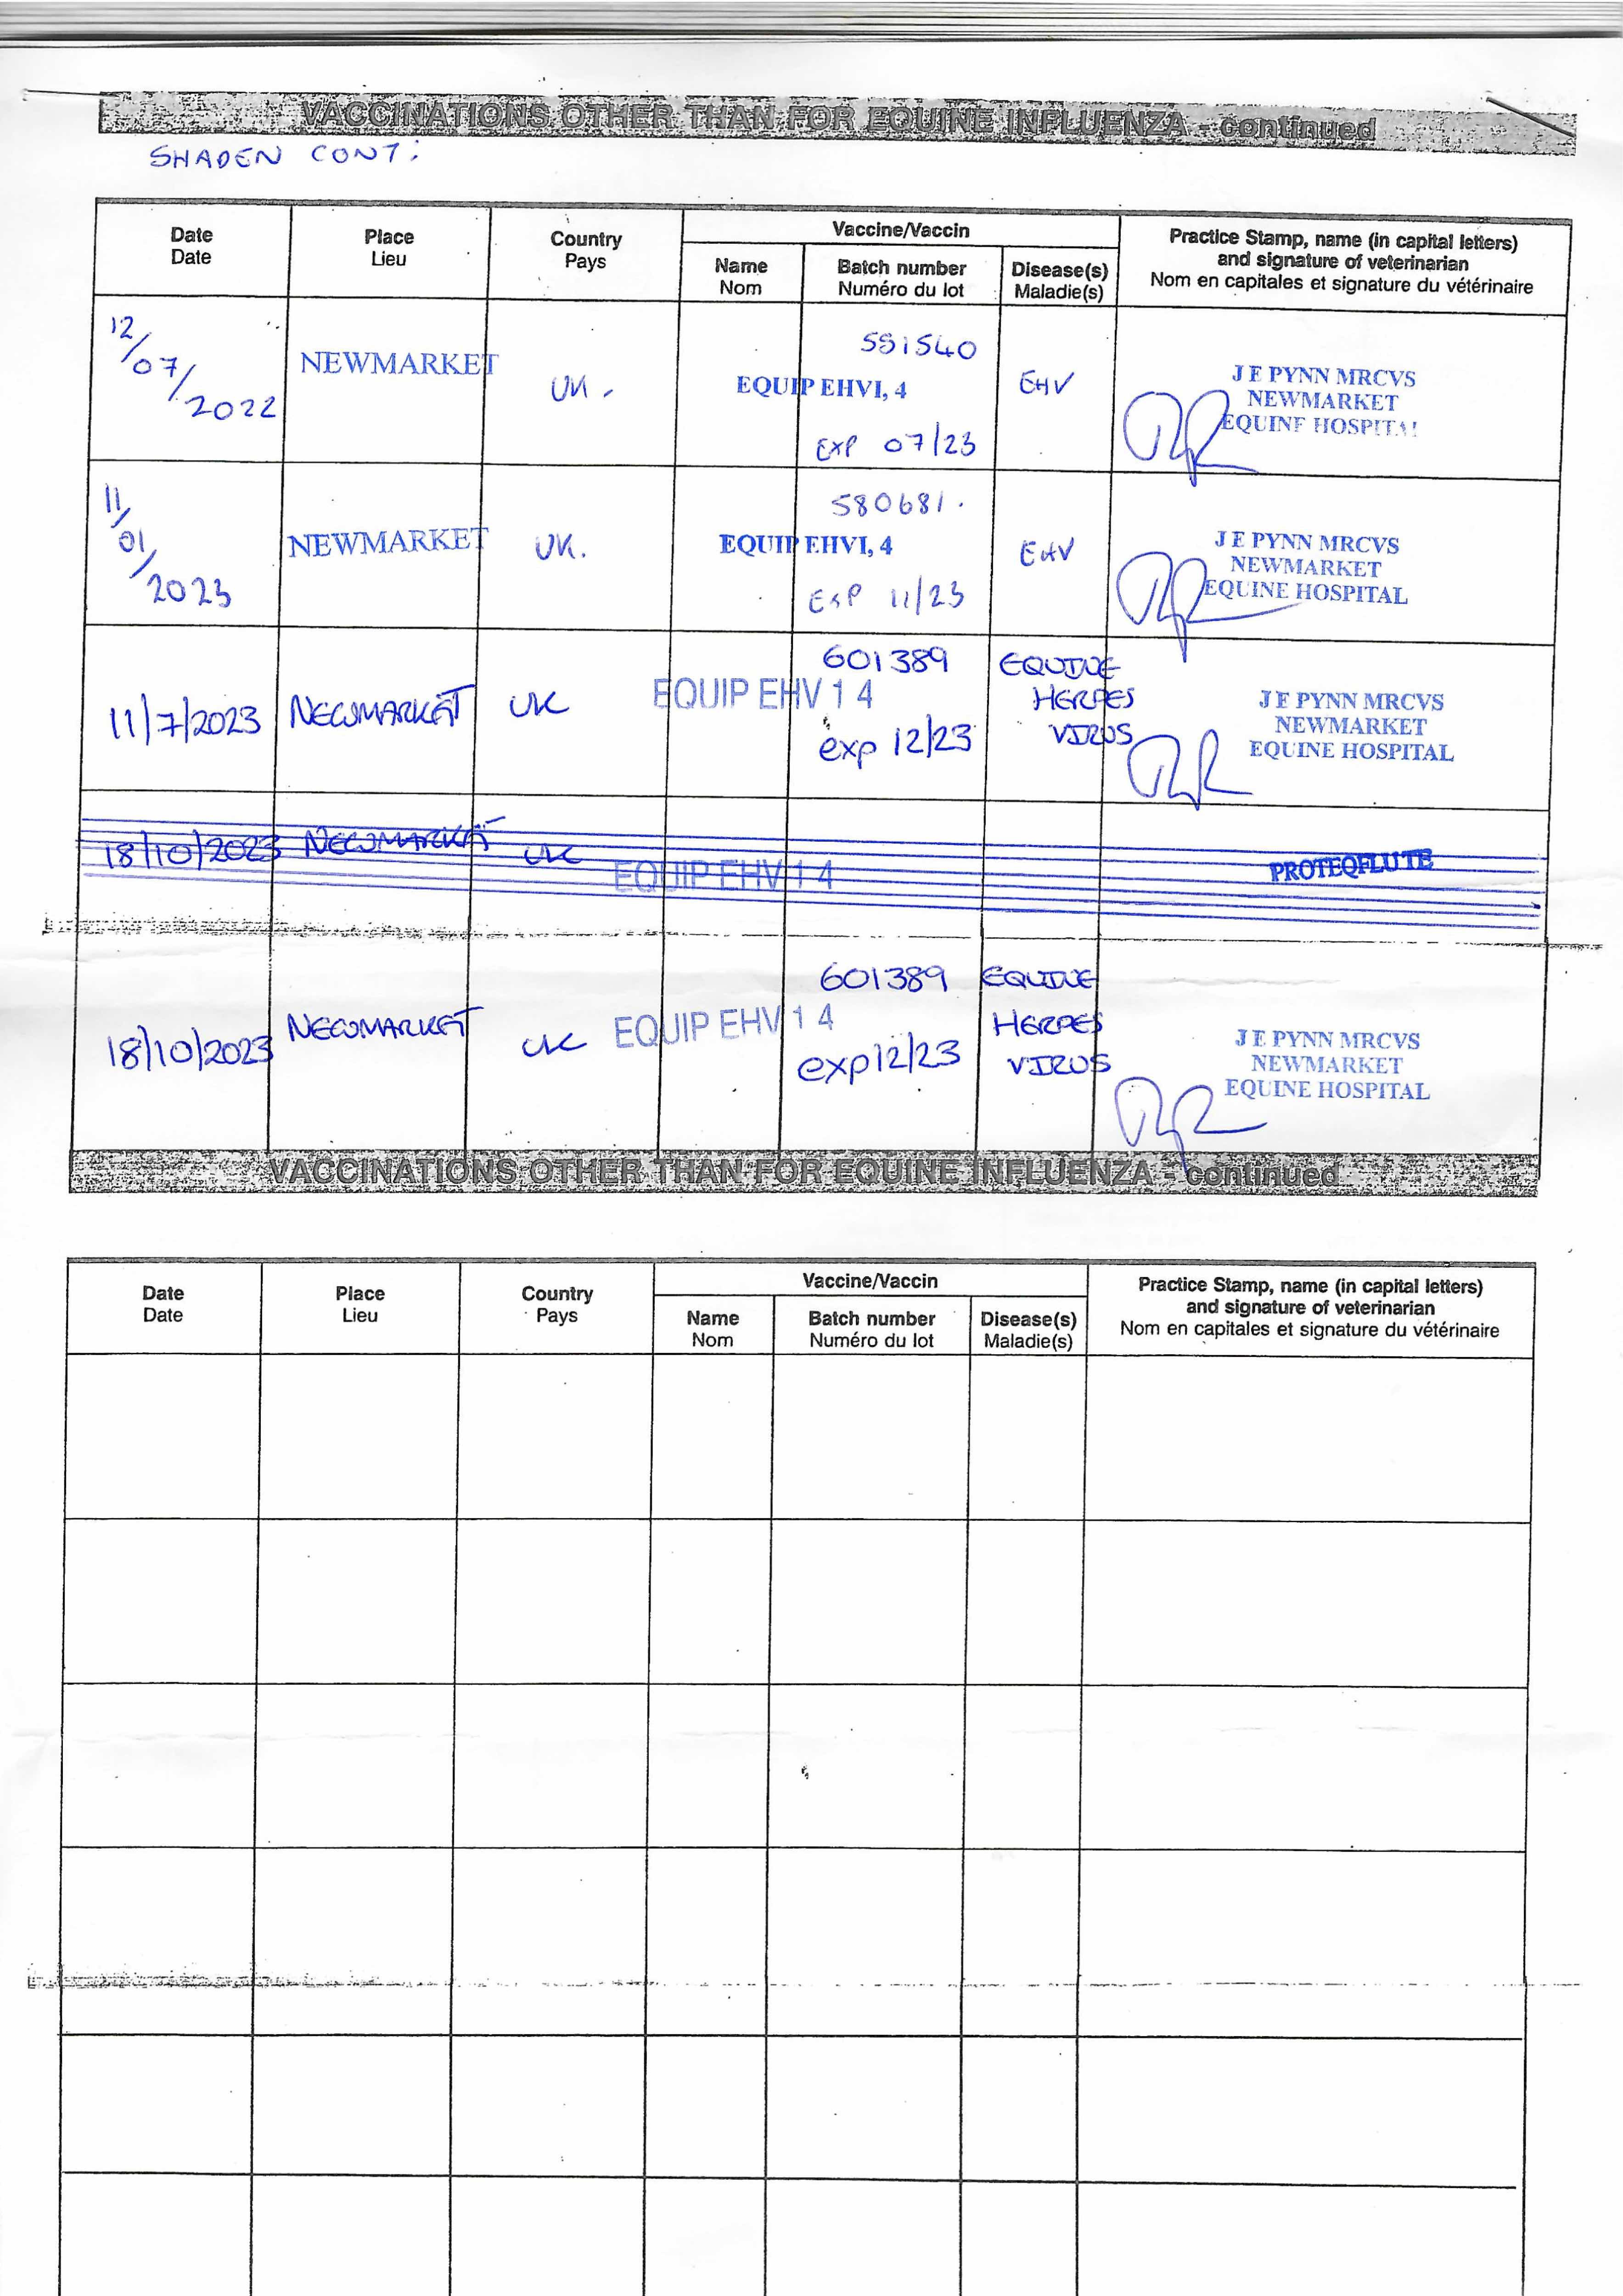 VACCINATIONS OTHER THAN FOR EQUINE INFLUENZA - continued
SHADEN CONT:
Date Date
Place Lieu
Country Pays
Vaccine/Vaccin
Name Nom
Batch number Numéro du lot
Disease(s) Maladie(s)
Practice Stamp, name (in capital letters)
and signature of veterinarian
Nom en capitales et signature du vétérinaire
12/07/2022
NEWMARKET
UK.
EQUIP EHV1, 4
551540
EXP 07/23
EHV
J E PYNN MRCVS
NEWMARKET
EQUINE HOSPITAL
11/01/2023
NEWMARKET
UK.
EQUIP EHV1, 4
580681.
EXP 11/23
EHV
J E PYNN MRCVS
NEWMARKET
EQUINE HOSPITAL
11/7/2023
NEWMARKET
UK
EQUIP EHV 1 4
601389
exp 12/23
EQUINE
HERPES
VIRUS
J E PYNN MRCVS
NEWMARKET
EQUINE HOSPITAL
18/10/2023 NEWMARKET UK EQUIP EHV 1 4 PROTEQFLU TE
18/10/2023
NEWMARKET
UK
EQUIP EHV 1 4
601389
exp 12/23
EQUINE
HERPES
VIRUS
J E PYNN MRCVS
NEWMARKET
EQUINE HOSPITAL
VACCINATIONS OTHER THAN FOR EQUINE INFLUENZA - continued
Date Date
Place Lieu
Country Pays
Vaccine/Vaccin
Name Nom
Batch number Numéro du lot
Disease(s) Maladie(s)
Practice Stamp, name (in capital letters)
and signature of veterinarian
Nom en capitales et signature du vétérinaire